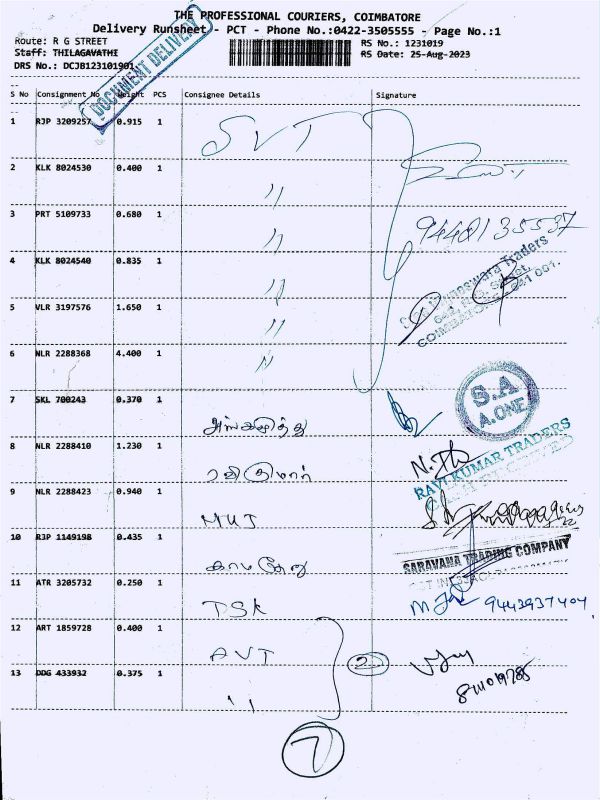 THE PROFESSIONAL COURIERS, COIMBATORE
Delivery Runsheet - PCT - Phone No.:0422-3505555 - Page No.:1
Route: R G STREET
RS No.: 1231019
Staff: THILAGAVATHI
RS Date: 25-Aug-2023
DRS No.: DCJB123101901
DOCUMENT DELIVERY
S No Consignment No Weight PCS Consignee Details Signature
1 RJP 3209257 0.915 1 SVT
2 KLK 8024530 0.400 1 "
3 PRT 5109733 0.680 1 "
4 KLK 8024540 0.835 1 "
5 VLR 3197576 1.650 1 "
6 NLR 2288368 4.400 1 "
7 SKL 700243 0.370 1
S.A
A.ONE
8 NLR 2288410 1.230 1 ரவிகுமார் N.
RAVI KUMAR TRADERS
9 NLR 2288423 0.940 1 MUT
10 RJP 1149198 0.435 1 காமதேனு
SARAVANA TRADING COMPANY
11 ATR 3205732 0.250 1 TSK 9443937404
12 ART 1859728 0.400 1 AVT 2
13 DDG 433932 0.375 1 "
7